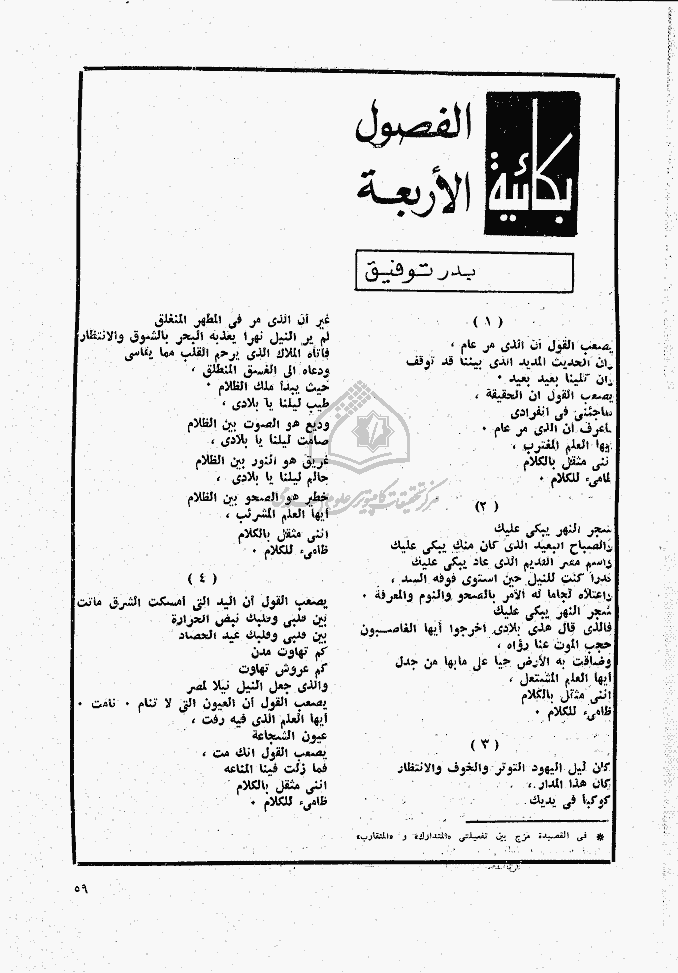 بكائية
الفصول
الأربعة
بدر توفيق
( ١ )
يصعب القول أن الذى مر عام ،
وان الحديث المديد الذى بيننا قد توقف
وان تلينا بعيد بعيد ٠
يصعب القول ان الحقيقة ،
ساجئنى فى انفرادى
أن الذى مر عام ٠
يها العلم المغترب ،
ننى مثقل بالكلام
امىء للكلام ٠
( ٢ )
شجر النهر يبكى عليك
والصباح البعيد الذى كان منك يبكى عليك
واسم مصر القديم الذى عاد يبكى عليك
قدرا كنت للنيل حين استوى فوقه السد ،
واعتلاه لجاما له الأمر بالصحو والنوم والمعرفة ٠
شجر النهر يبكى عليك
فالذى قال هذى بلادى اخرجوا أيها الغاصبون
حجب الموت عنا رؤاه ،
وضاقت به الأرض حيا على مابها من جدل
أيها العلم المشتعل ،
اننى مثقل بالكلام
ظامىء للكلام ٠
( ٣ )
كان ليل اليهود التوتر والخوف والانتظار
كان هذا المدار ،
كوكبا فى يديك
غير أن الذى مر فى المطهر المنغلق
لم ير النيل نهرا يعذبه البحر بالشوق والانتظار
فأتاه الملاك الذى يرحم القلب مما يقاسى
ودعاه الى الغسق المنطلق ،
حيث يبدأ ملك الظلام ٠
طيب ليلنا يا بلادى ،
وديع هو الصوت بين الظلام
صامت ليلنا يا بلادى ،
غريق هو النور بين الظلام
حالم ليلنا يا بلادى ،
خطير هو الصحو بين الظلام
أيها العلم المشرئب ،
اننى مثقل بالكلام
ظامىء للكلام ٠
( ٤ )
يصعب القول أن اليد التى أمسكت الشرق ماتت
بين قلبى وقلبك نبض الحرارة
بين قلبى وقلبك عيد الحصاد
كم تهاوت مدن
كم عروش تهاوت
والذى جعل النيل نيلا لمصر
يصعب القول أن العيون التى لا تنام ٠ نامت ٠
أيها العلم الذى فيه رفت ،
عيون الشجاعة
يصعب القول انك مت ،
فما زلت فينا المناعه
اننى مثقل بالكلام
ظامىء للكلام ٠
* فى القصيدة مزج بين تفعيلتى «المتدارك» و «المتقارب»
٥٩